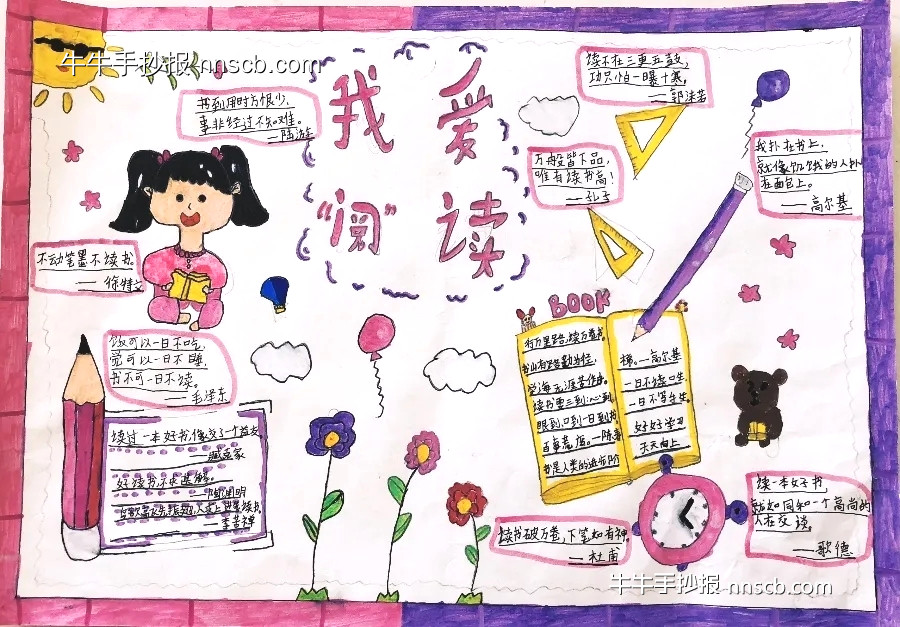 牛牛手抄报·nnscb.com
我爱
“阅”读
书到用时方恨少,
事非经过不知难。
——陆游
读不在三更五鼓,
功只怕一曝十寒。
——郭沫若
万般皆下品,
唯有读书高!
——孔子
我扑在书上,
就像饥饿的人扑
在面包上。
——高尔基
不动笔墨不读书。
——徐特立
饭可以一日不吃,
觉可以一日不睡,
书不可一日不读。
——毛泽东
读过一本好书,像交了一个益友
——臧克家
好读书不求甚解。
陶渊明
李苦禅
BOOK
行万里路,读万卷书。
书山有路勤为径,
学海无涯苦作舟。
读书要三到:心到
眼到口到一日到书
百事荒废。——陈寿
书是人类的进步阶
梯。——高尔基
一日不读口生,
一日不写手生。
好好学习
天天向上
读书破万卷,下笔如有神。
——杜甫
读一本好书,
就如同和一个高尚的
人在交谈。
——歌德
牛牛手抄报·nnscb.com